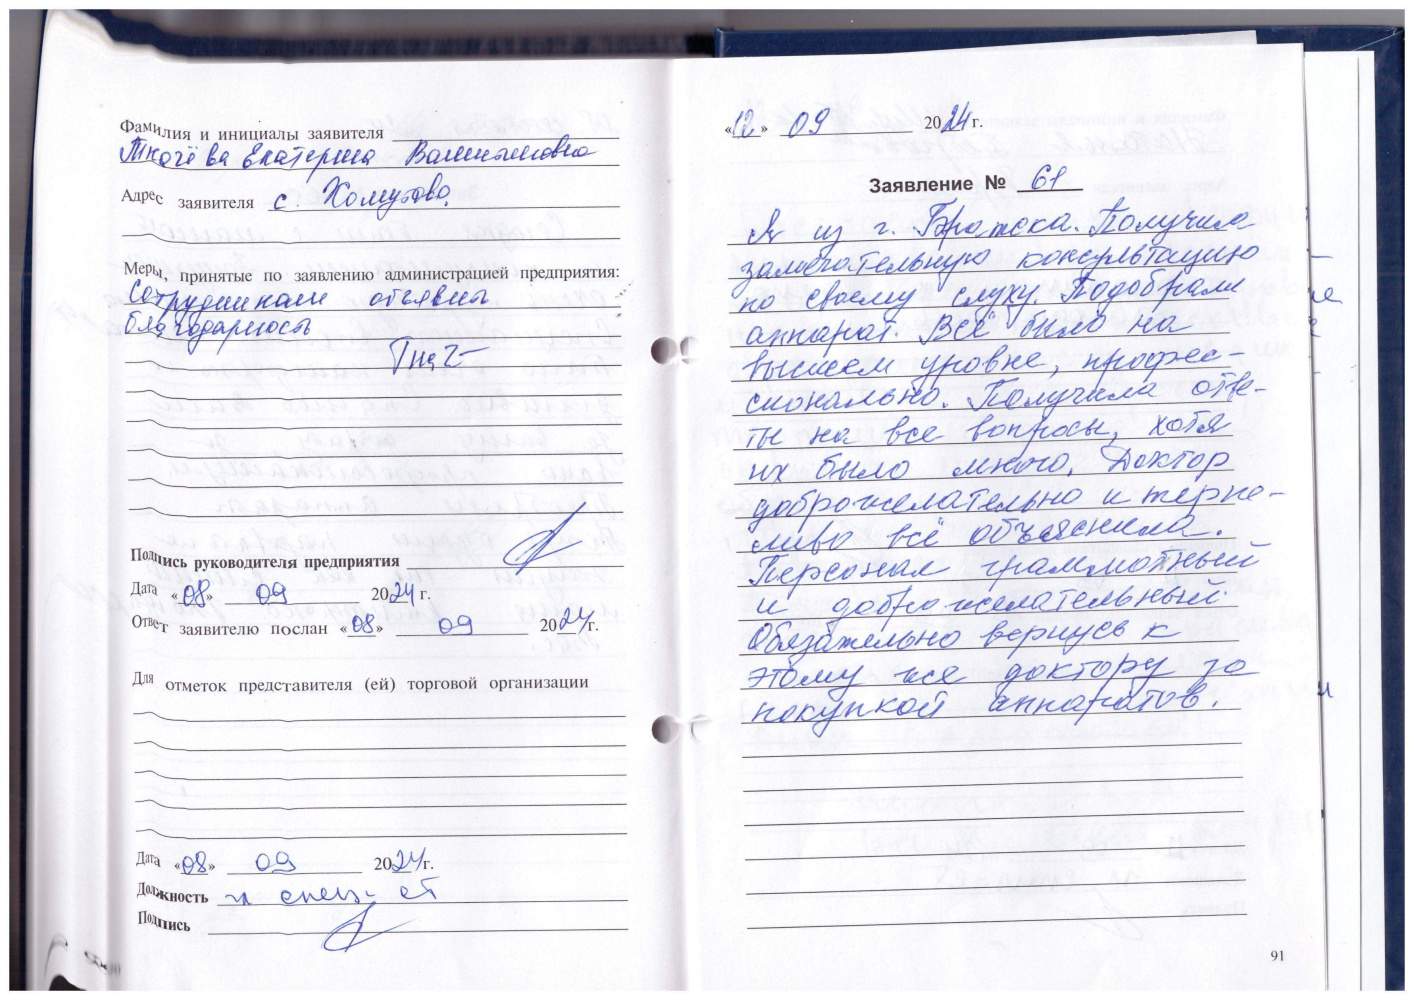 Фамилия и инициалы заявителя
Ткачёва Екатерина
Адрес заявителя с Хомутово
Меры, принятые по заявлению администрацией предприятия:
Сотрудникам объявлена
благодарность
Подпись руководителя предприятия
Дата «08» 09 2024 г.
Ответ заявителю послан «08» 09 2024 г.
Для отметок представителя (ей) торговой организации
Дата «08» 09 2024 г.
Должность
Подпись
«12» 09 2024 г.
Заявление № 61
Я из г. Братска. Получила
замечательную консультацию
по своему слуху. Подобрали
аппарат. Всё было на
высшем уровне, профес-
сионально. Получила отве-
ты на все вопросы, хотя
их было много. Доктор
доброжелательно и терпе-
ливо всё объяснила.
Персонал грамотный
и доброжелательный.
Обязательно вернусь к
этому же доктору за
покупкой аппаратов.
91